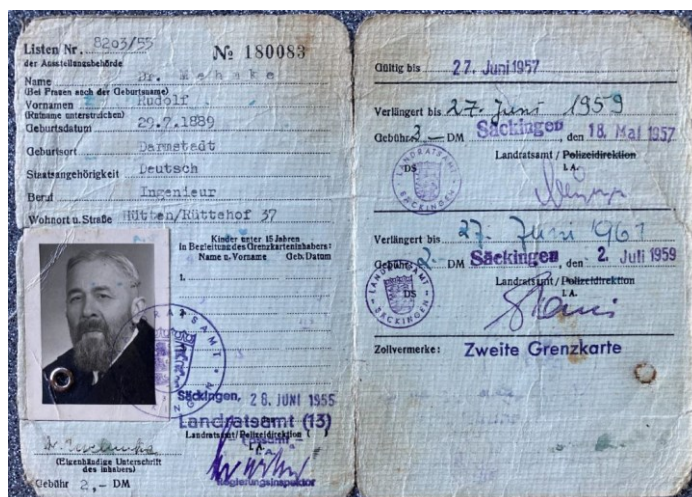 Listen Nr. 8203/55
№ 180083
der Ausstellungsbehörde
Name Dr. Mehmke
(Bei Frauen auch der Geburtsname)
Vornamen Rudolf
(Rufname unterstreichen)
Geburtsdatum 29.7.1889
Geburtsort Darmstadt
Staatsangehörigkeit Deutsch
Beruf Ingenieur
Wohnort u. Straße Hütten/Rüttehof 37
Kinder unter 15 Jahren
in Begleitung des Grenzkarteninhabers:
Name u. Vorname Geb. Datum
1.
LANDRATSAMT
SÄCKINGEN
Säckingen, 28. JUNI 1955
Landratsamt (13)
Landratsamt/Polizeidirektion
I.A.
Regierungsinspektor
(Eigenhändige Unterschrift
des Inhabers)
Gebühr 2,- DM
Gültig bis 27. Juni 1957
Verlängert bis 27. Juni 1959
Gebühr 2,- DM Säckingen, den 18. Mai 1957
Landratsamt / Polizeidirektion
DS
I.A.
LANDRATSAMT
SÄCKINGEN
Verlängert bis 27. Juni 1961
Gebühr 2,- DM Säckingen, den 2. Juli 1959
Landratsamt / Polizeidirektion
DS
I.A.
LANDRATSAMT
SÄCKINGEN
Zollvermerke: Zweite Grenzkarte